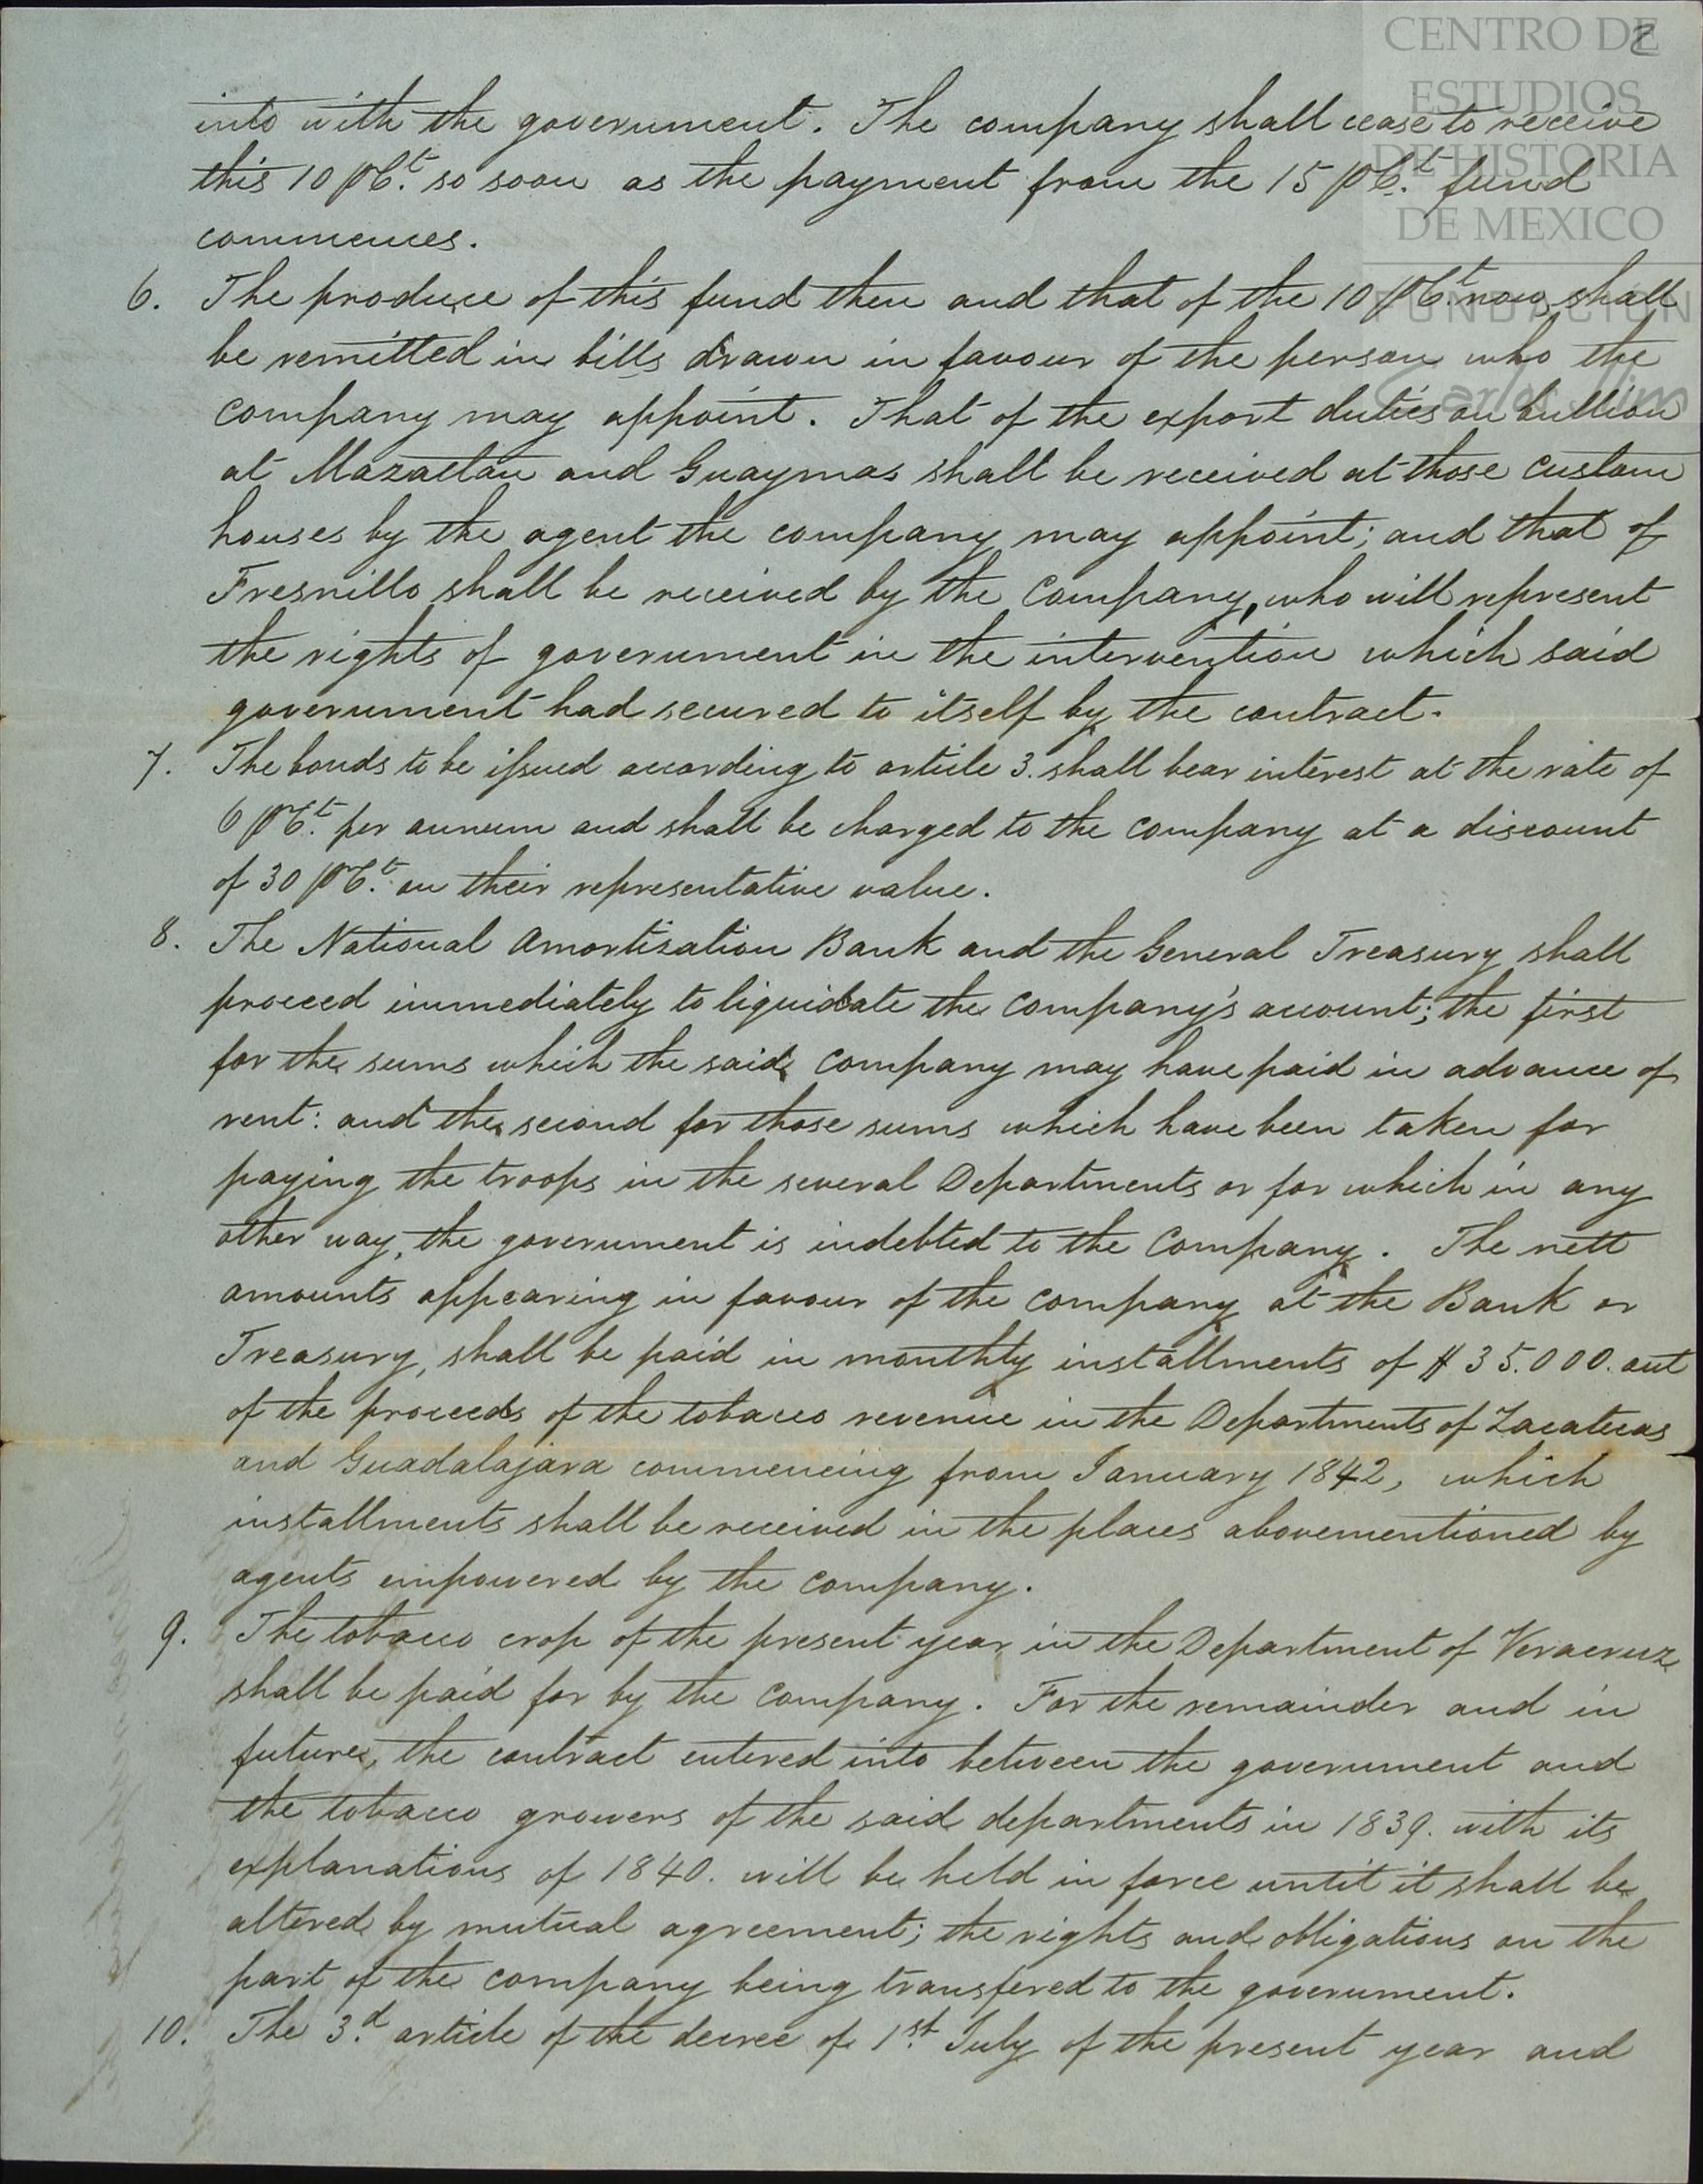 2
CENTRO DE
ESTUDIOS
DE HISTORIA
DE MEXICO
FUNDACION
Carlos Slim
into with the government. The company shall cease to receive
this 10 pCt. so soon as the payment from the 15 pCt. fund
commences.
6. The produce of this fund then and that of the 10 pCt. now, shall
be remitted in bills drawn in favour of the person who the
company may appoint. That of the export duties on bullion
at Mazatlan and Guaymas shall be received at those custom
houses by the agent the company may appoint; and that of
Fresnillo shall be received by the Company, who will represent
the rights of government in the intervention which said
government had secured to itself by the contract.
7. The bonds to be issued according to article 3. shall bear interest at the rate of
6 pCt. per annum and shall be charged to the company at a discount
of 30 pCt. on their representative value.
8. The National Amortization Bank and the General Treasury shall
proceed immediately to liquidate the company's account; the first
for the sums which the said company may have paid in advance of
rent: and the second for those sums which have been taken for
paying the troops in the several Departments or for which in any
other way, the government is indebted to the Company. The nett
amounts appearing in favour of the company at the Bank or
Treasury, shall be paid in monthly installments of $ 35.000. out
of the proceeds of the tobacco revenue in the Departments of Zacatecas
and Guadalajara commencing from January 1842, which
installments shall be received in the places abovementioned by
agents empowered by the company.
9. The tobacco crop of the present year in the Department of Veracruz
shall be paid for by the company. For the remainder and in
future, the contract entered into between the government and
the tobacco growers of the said departments in 1839. with its
explanations of 1840. will be held in force until it shall be
altered by mutual agreement; the rights and obligations on the
part of the company being transfered to the government.
10. The 3.d article of the decree of 1st. July of the present year and